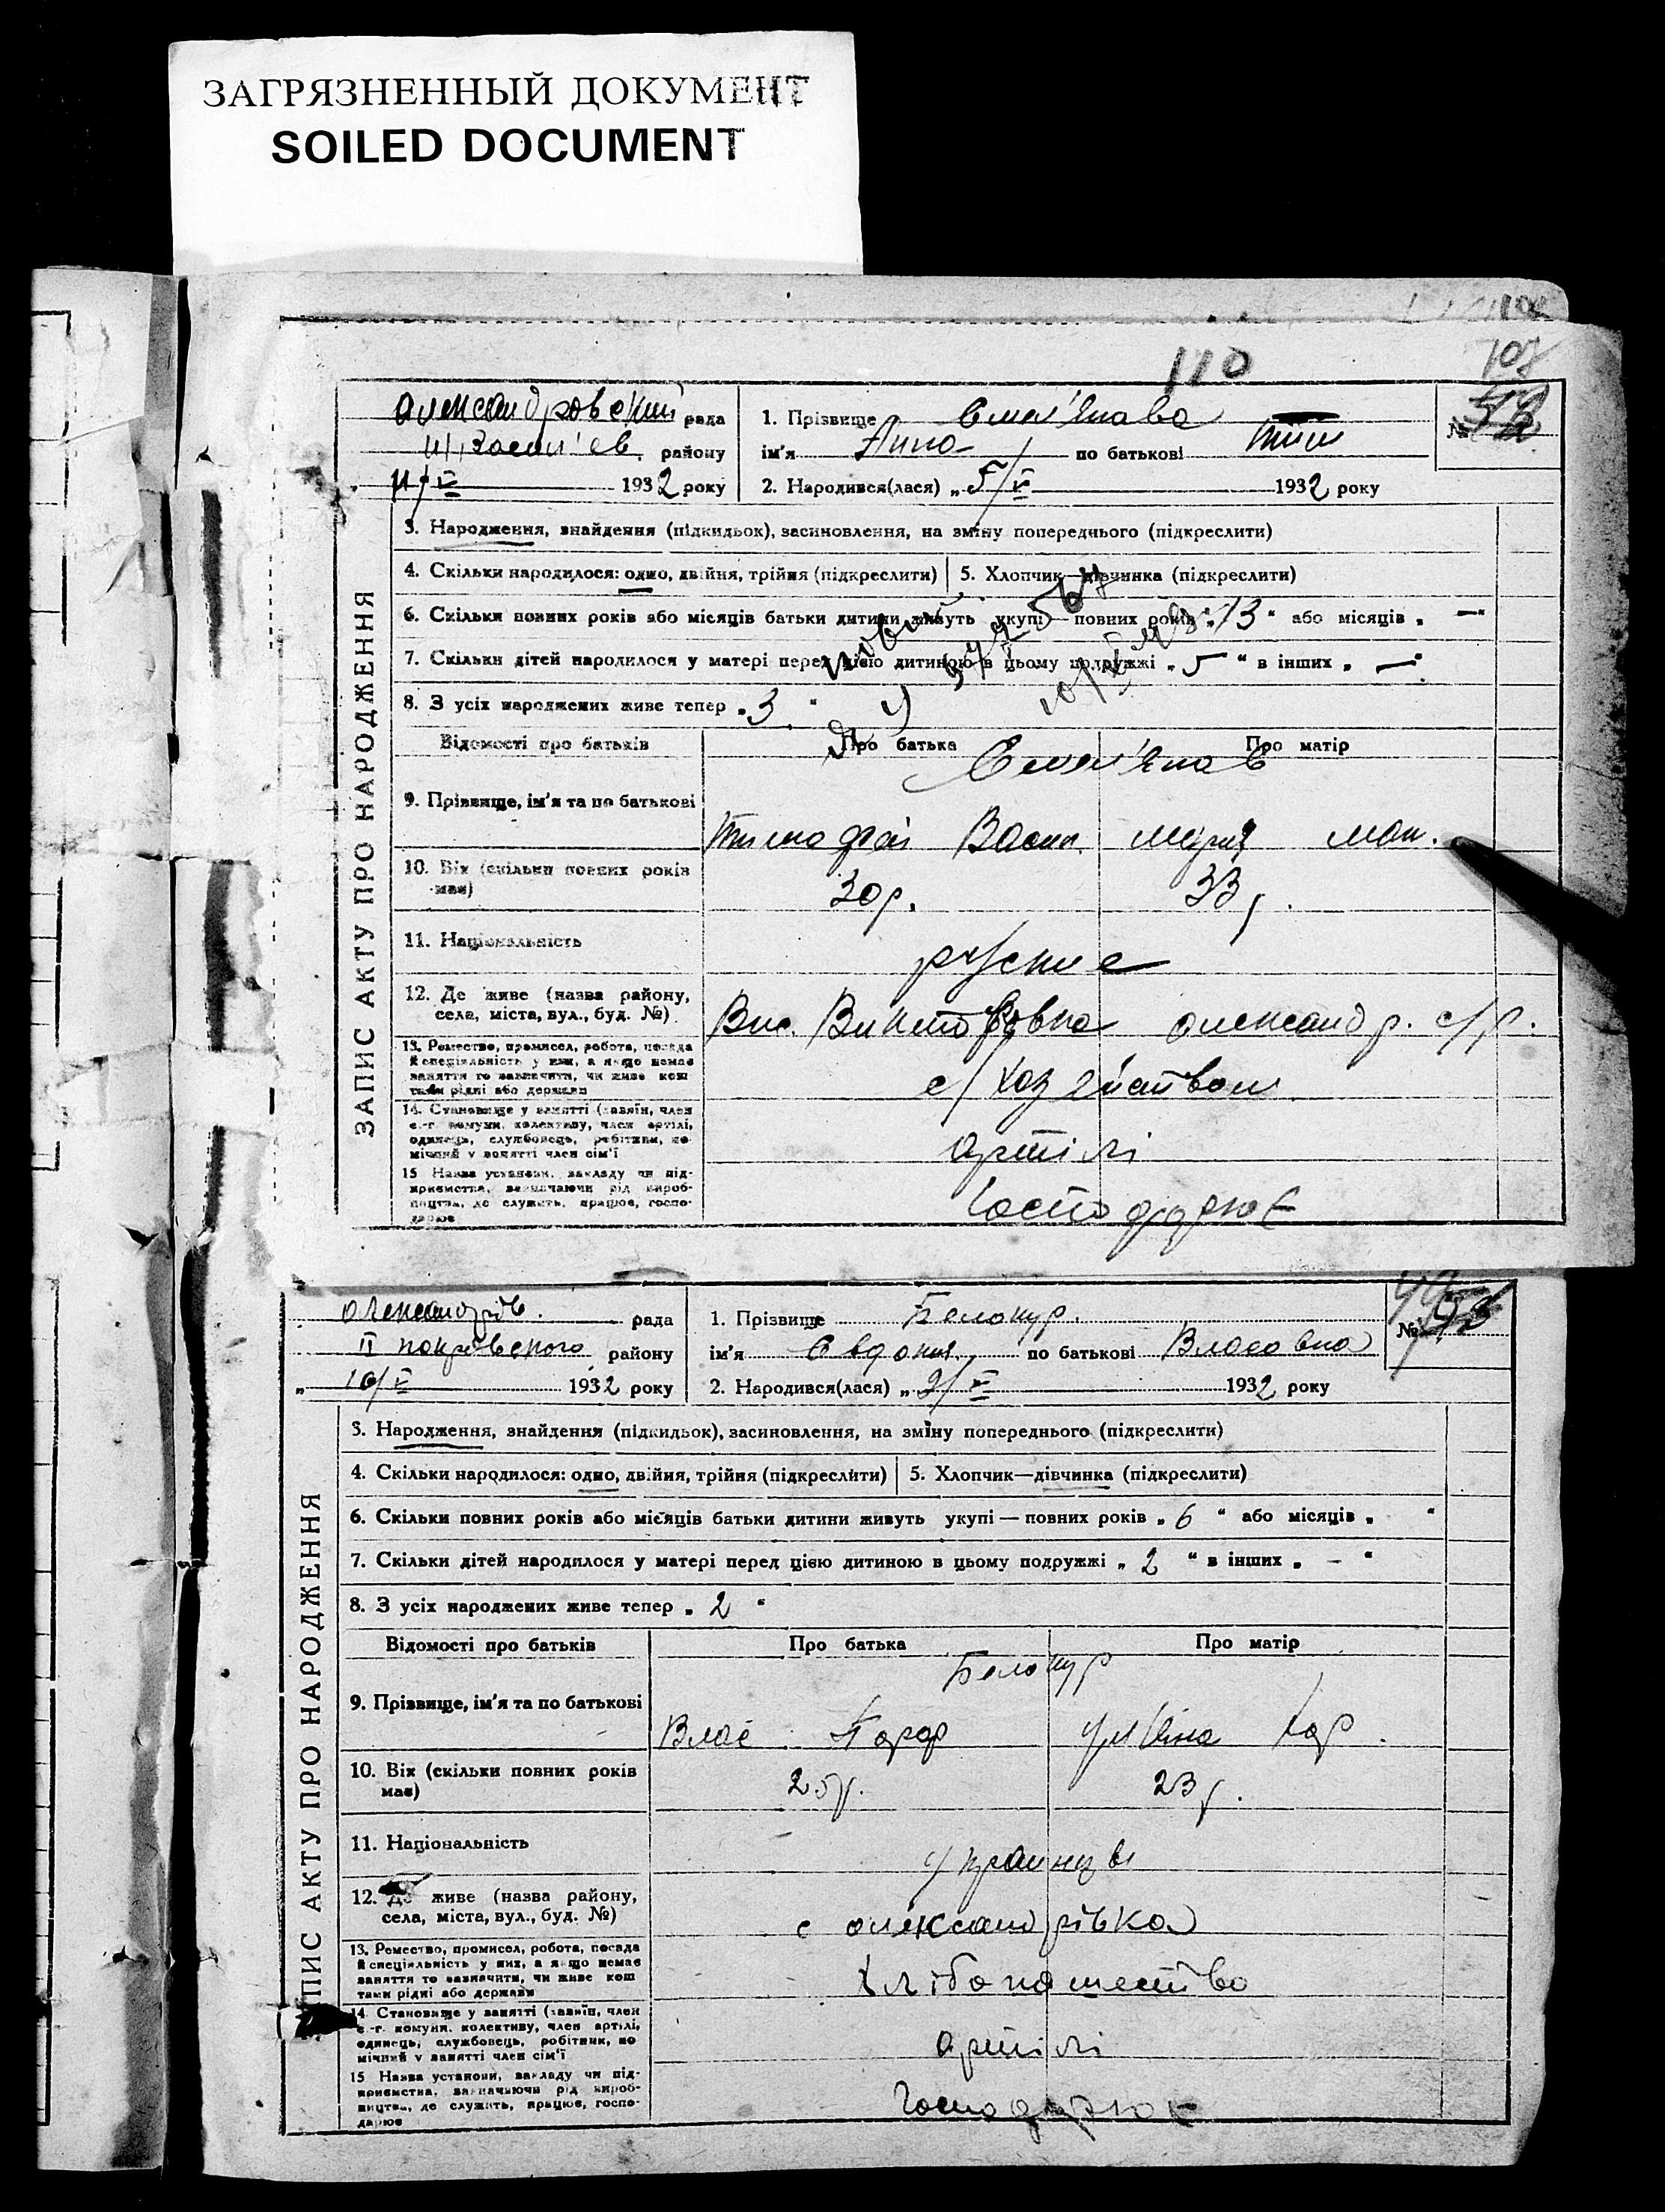 ЗАГРЯЗНЕННЫЙ ДОКУМЕНТ
SOILED DOCUMENT
110
107
Олександровский рада
району
11/V 1932 року
1. Прізвище Омел'янова №
ім'я Нина по батькові Тим
2. Народився(лася) „ 5/V 1932 року
ЗАПИС АКТУ ПРО НАРОДЖЕННЯ
3. Народження, знайдення (підкидьок), засиновлення, на зміну попереднього (підкреслити)
4. Скільки народилося: одно, двійня, трійня (підкреслити) 5. Хлопчик—дівчинка (підкреслити)
6. Скільки повних років або місяців батьки дитини живуть укупі — повних років „ 13 “ або місяців „ — “
7. Скільки дітей народилося у матері перед цією дитиною в цьому подружжі „ 5 “ в інших „ — “
8. З усіх народжених живе тепер „ 3 “
Відомості про батьків Про батька Про матір
9. Прізвище, ім'я та по батькові
Тимофей Васил. Мария
10. Вік (скільки повних років має) 30 р. 33 р.
11. Національність руские
12. Де живе (назва району, села, міста, вул., буд. №) Викторовка Олександр. с/р.
13. Ремество, промисел, робота, посада й спеціяльність у них, а якщо немає заняття то зазначити, чи живе кош тами рідні або держави с/хозяйством
14. Становище у занятті (хазяїн, член с.-г. комуни, колективу, член артілі, одинець, службовець, робітник, помічний у занятті член сім'ї артілі
15 Назва установи, закладу чи підприємства, зазначаючи рід виробництва, де служить, працює, господарює Господарює
Олександрів. рада
II Покровського району
„ 10/V 1932 року
1. Прізвище Белокур. №
ім'я Евдокия по батькові Власовна
2. Народився(лася) „ 2/V 1932 року
ЗАПИС АКТУ ПРО НАРОДЖЕННЯ
3. Народження, знайдення (підкидьок), засиновлення, на зміну попереднього (підкреслити)
4. Скільки народилося: одно, двійня, трійня (підкреслити) 5. Хлопчик—дівчинка (підкреслити)
6. Скільки повних років або місяців батьки дитини живуть укупі — повних років „ 6 “ або місяців „ “
7. Скільки дітей народилося у матері перед цією дитиною в цьому подружжі „ 2 “ в інших „ - “
8. З усіх народжених живе тепер „ 2 “
Відомості про батьків Про батька Про матір
Белокур
9. Прізвище, ім'я та по батькові
Влас Ульяна
10. Вік (скільки повних років має) 25 р. 23 р.
11. Національність Українці
12. Де живе (назва району, села, міста, вул., буд. №) с Олександрівка
13. Ремество, промисел, робота, посада й спеціяльність у них, а якщо немає заняття то зазначити, чи живе кош тами рідні або держави Хлібопашество
14. Становище у занятті (хазяїн, член с.-г. комуни, колективу, член артілі, одинець, службовець, робітник, помічний у занятті член сім'ї артілі
15 Назва установи, закладу чи підприємства, зазначаючи рід виробництва, де служить, працює, господарює Господарює